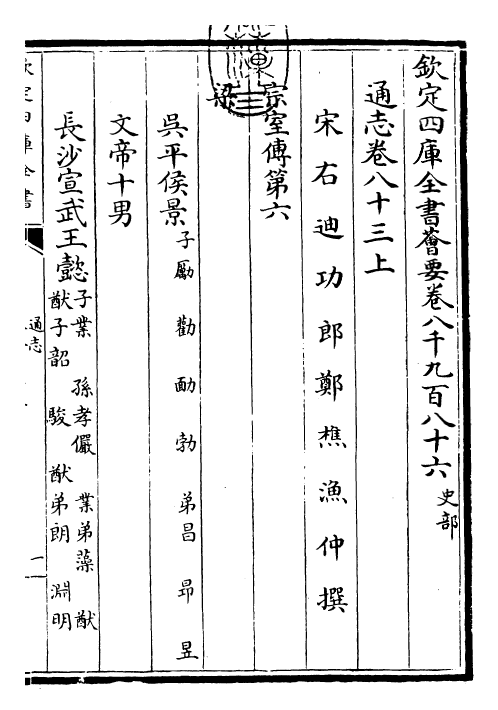 欽定四庫全書薈要卷八千九百八十六 史部
通志卷八十三上
宋右迪功郎鄭樵漁仲撰
宗室傳第六
梁
吳平侯景 子勵 勸 勔 勃 弟昌 昻 昱
文帝十男
長沙宣武王懿 子業 孫孝儼 業弟藻 猷
猷子韶 駿 猷弟朗 淵明
欽定四庫全書
通志